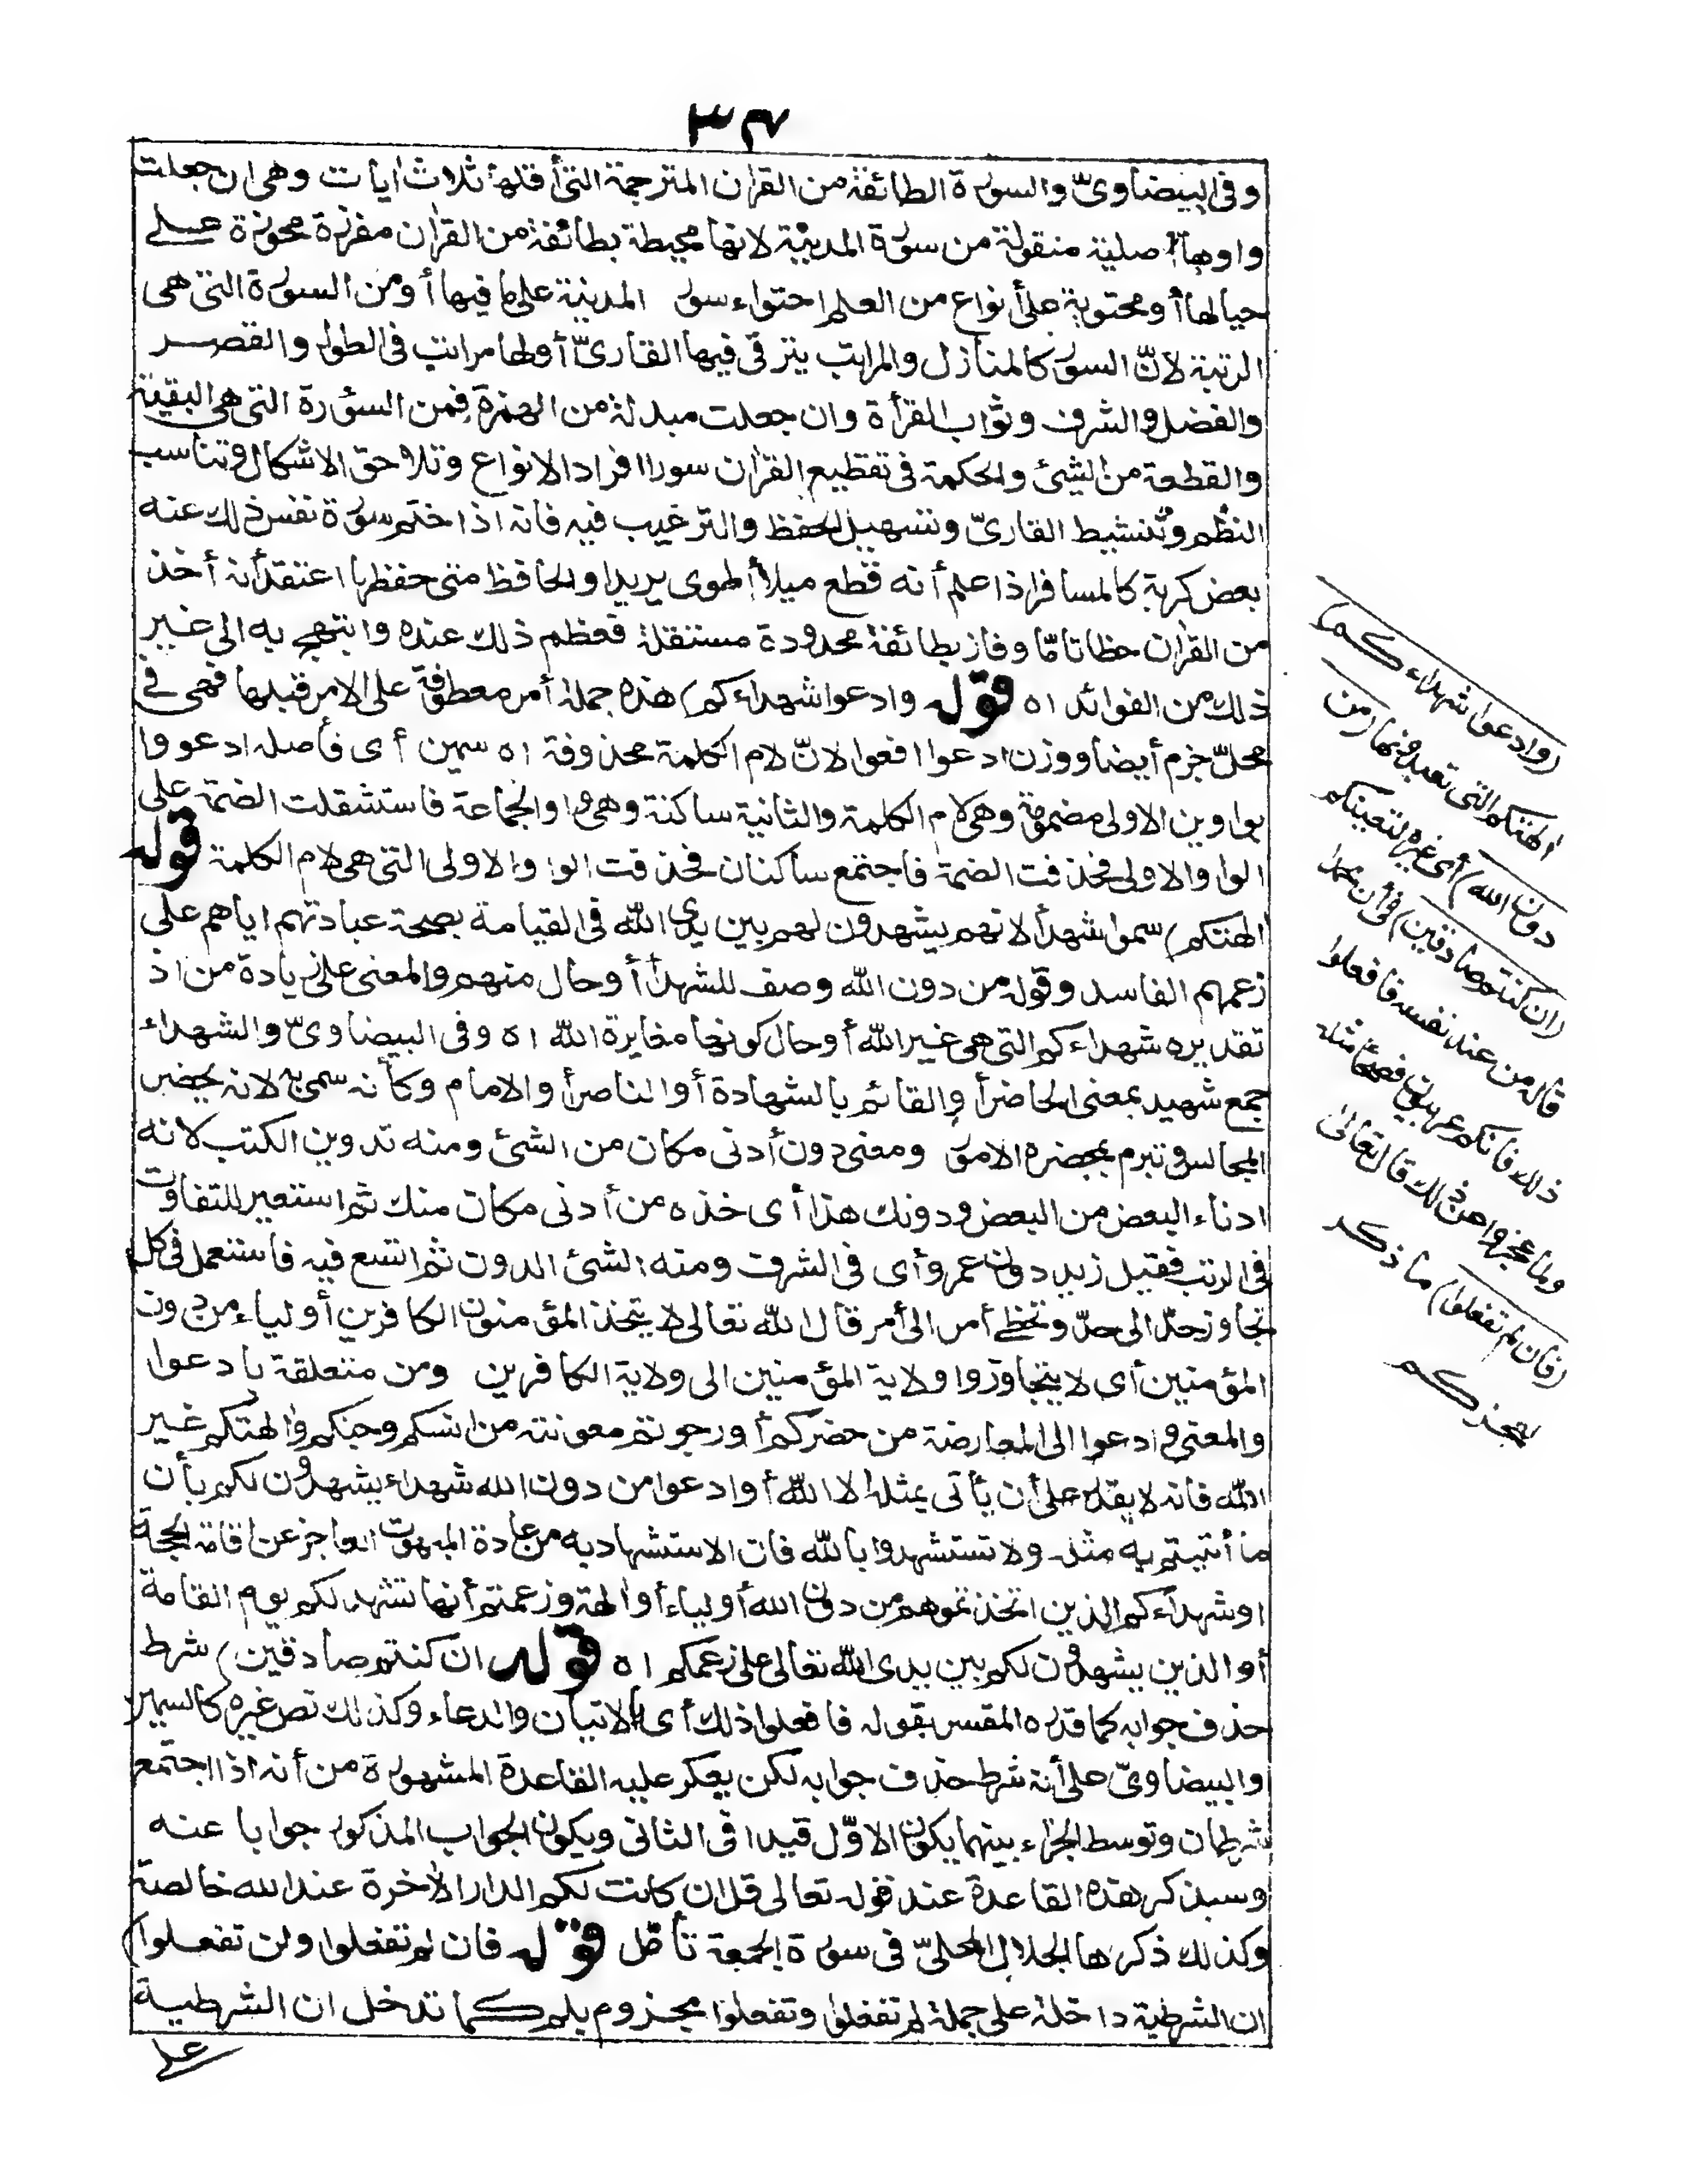 ٣٤
وفى البيضاوىّ والسورة الطائفة من القرٰان المترجمة التى أقلها ثلاث اٰيات وهى ان جعلت
واوها أصلية منقولة من سورة المدينة لانها محيطة بطائفة من القرٰان مفرزة محوزة على
حيالها أو محتوية على أنواع من العلم احتواء سور المدينة على ما فيها أو من السورة التى هى
الرتبة لانّ السور كالمنازل والمراتب يترقى فيها القارئ أو لها مراتب فى الطول والقصر
والفضل والشرف وثواب القرأة وان جعلت مبدلة من الهمزة فمن السؤرة التى هى البقية
والقطعة من الشيئ والحكمة فى تقطيع القرٰان سورا افراد الانواع وتلاحق الاشكال وتناسب
النظم وتنشيط القارىّ وتسهيل الحفظ والترغيب فيه فانه اذا ختم سورة نفس ذلك عنه
بعض كربة كالمسافر اذا علم أنه قطع ميلا أو طوى بريدا والحافظ متى حفظها اعتقد أنه أخذ
من القرٰان حظا تامّا وفاز بطائفة محدودة مستقلة فعظم ذلك عنده وابتهج به الى غير
ذلك من الفوائد اه قوله وادعوا شهداءكم) هذه جملة أمر معطوفة على الامر قبلها فهى فى
محلّ جزم أيضا ووزن ادعوا افعوا لانّ لام الكلمة محذوفة اه سمين أى فأصله ادعووا
بواوين الاولى مضمومة وهى لام الكلمة والثانية ساكنة وهى واو الجماعة فاستثقلت الضمة على
الواو الاولى فحذفت الضمة فاجتمع ساكنان فحذفت الواو الاولى التى هى لام الكلمة قوله
اٰلهتكم) سموا شهدأ لانهم يشهدون لهم بين يدى اللّٰه فى القيامة بصحة عبادتهم اياهم على
زعمهم الفاسد وقوله من دون اللّٰه وصف للشهدأ أو حال منهم والمعنى على زيادة من اذ
تقديره شهداءكم التى هى غير اللّٰه أو حال كونها مغايرة اللّٰه اه وفى البيضاوىّ والشهداء
جمع شهيد بمعنى الحاضر أو القائم بالشهادة أو الناصر أو الامام وكأنه سمى به لانه يحضر
المجالس وتبرم بمحضره الامور ومعنى دون أدنى مكان من الشئ ومنه تدوين الكتب لانه
ادناء البعض من البعض ودونك هذا أى خذه من أدنى مكان منك ثم استعير للتفاوت
فى الرتب فقيل زيد دون عمرو أى فى الشرف ومنه الشئ الدون ثم اتسع فيه فاستعمل فى كل
تجاوز حدّ الى حدّ وتخطى أمر الى أمر قال اللّٰه تعالى لا يتخذ المؤمنون الكافرين أولياء من دون
المؤمنين أى لا يتجاوزوا ولاية المؤمنين الى ولاية الكافرين ومن متعلقة بادعوا
والمعنى وادعوا الى المعارضة من حضركم أو رجوتم معونته من انسكم وجنكم واٰلهتكم غير
اللّٰه فانه لا يقدر على أن يأتى بمثله الا اللّٰه أو ادعوا من دون الله شهداء يشهدون لكم بأن
ما أتيتم به مثله ولا تستشهدوا باللّٰه فان الاستشهاد به من عادة المبهوت العاجز عن اقامة الحجة
او شهدآءكم الذين اتخذتموهم من دون الله أولياء أو اٰلهة وزعمتم أنها تشهد لكم يوم القامة
أو الذين يشهدون لكم بين يدى اللّٰه تعالى على زعمكم اه قوله ان كنتم صادقين) شرط
حذف جوابه كما قدره المفسر بقوله فافعلوا ذلك أى الاتيان والدعاء وكذلك نص غيره كالسمين
والبيضاوىّ على أنه شرط حذف جوابه لكن يعكر عليه القاعدة المشهورة من أنه اذا اجتمع
شرطان وتوسط الجزاء بينهما يكون الاوّل قيدا فى الثانى ويكون الجواب المذكور جوابا عنه
وسيذكر هذه القاعدة عند قوله تعالى قل ان كانت لكم الدار الاٰخرة عند الله خالصة
وكذلك ذكرها الجلال المحلىّ فى سورة الجمعة تأمّل قوله فان لم تفعلوا ولن تفعلوا)
ان الشرطية داخلة على جملة لم تفعلوا وتفعلوا مجزوم بلم كما تدخل ان الشرطية
على
(وادعوا شهداءكم)
اٰلهتكم التى تعبدونها (من
دون الله) أى غيره لتعينكم
(ان كنتم صادقين) فى أن محمدا
قاله من عند نفسه فافعلوا
ذلك فانكم عربيون فصحاء مثله
ولما عجزوا عن ذلك قال تعالى
(فان لم تفعلوا) ما ذكر
لعجزكم